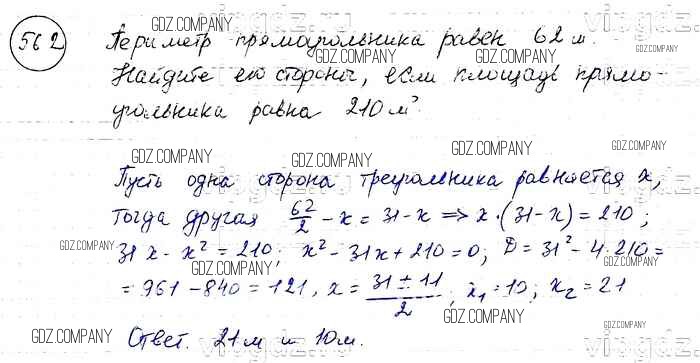 562 Периметр прямоугольника равен 62 м.
Найдите его стороны, если площадь прямо-
угольника равна 210 м².
Пусть одна сторона треугольника равняется x,
тогда другая 62/2 - x = 31 - x => x · (31 - x) = 210;
31x - x² = 210; x² - 31x + 210 = 0; D = 31² - 4·210 =
= 961 - 840 = 121, x = (31 ± 11)/2; x₁ = 10; x₂ = 21
Ответ. 21 м и 10 м.
GDZ.COMPANY
GDZ.COMPANY
GDZ.COMPANY
GDZ.COMPANY
GDZ.COMPANY
GDZ.COMPANY
GDZ.COMPANY
GDZ.COMPANY
GDZ.COMPANY
GDZ.COMPANY
GDZ.COMPANY
GDZ.COMPANY
GDZ.COMPANY